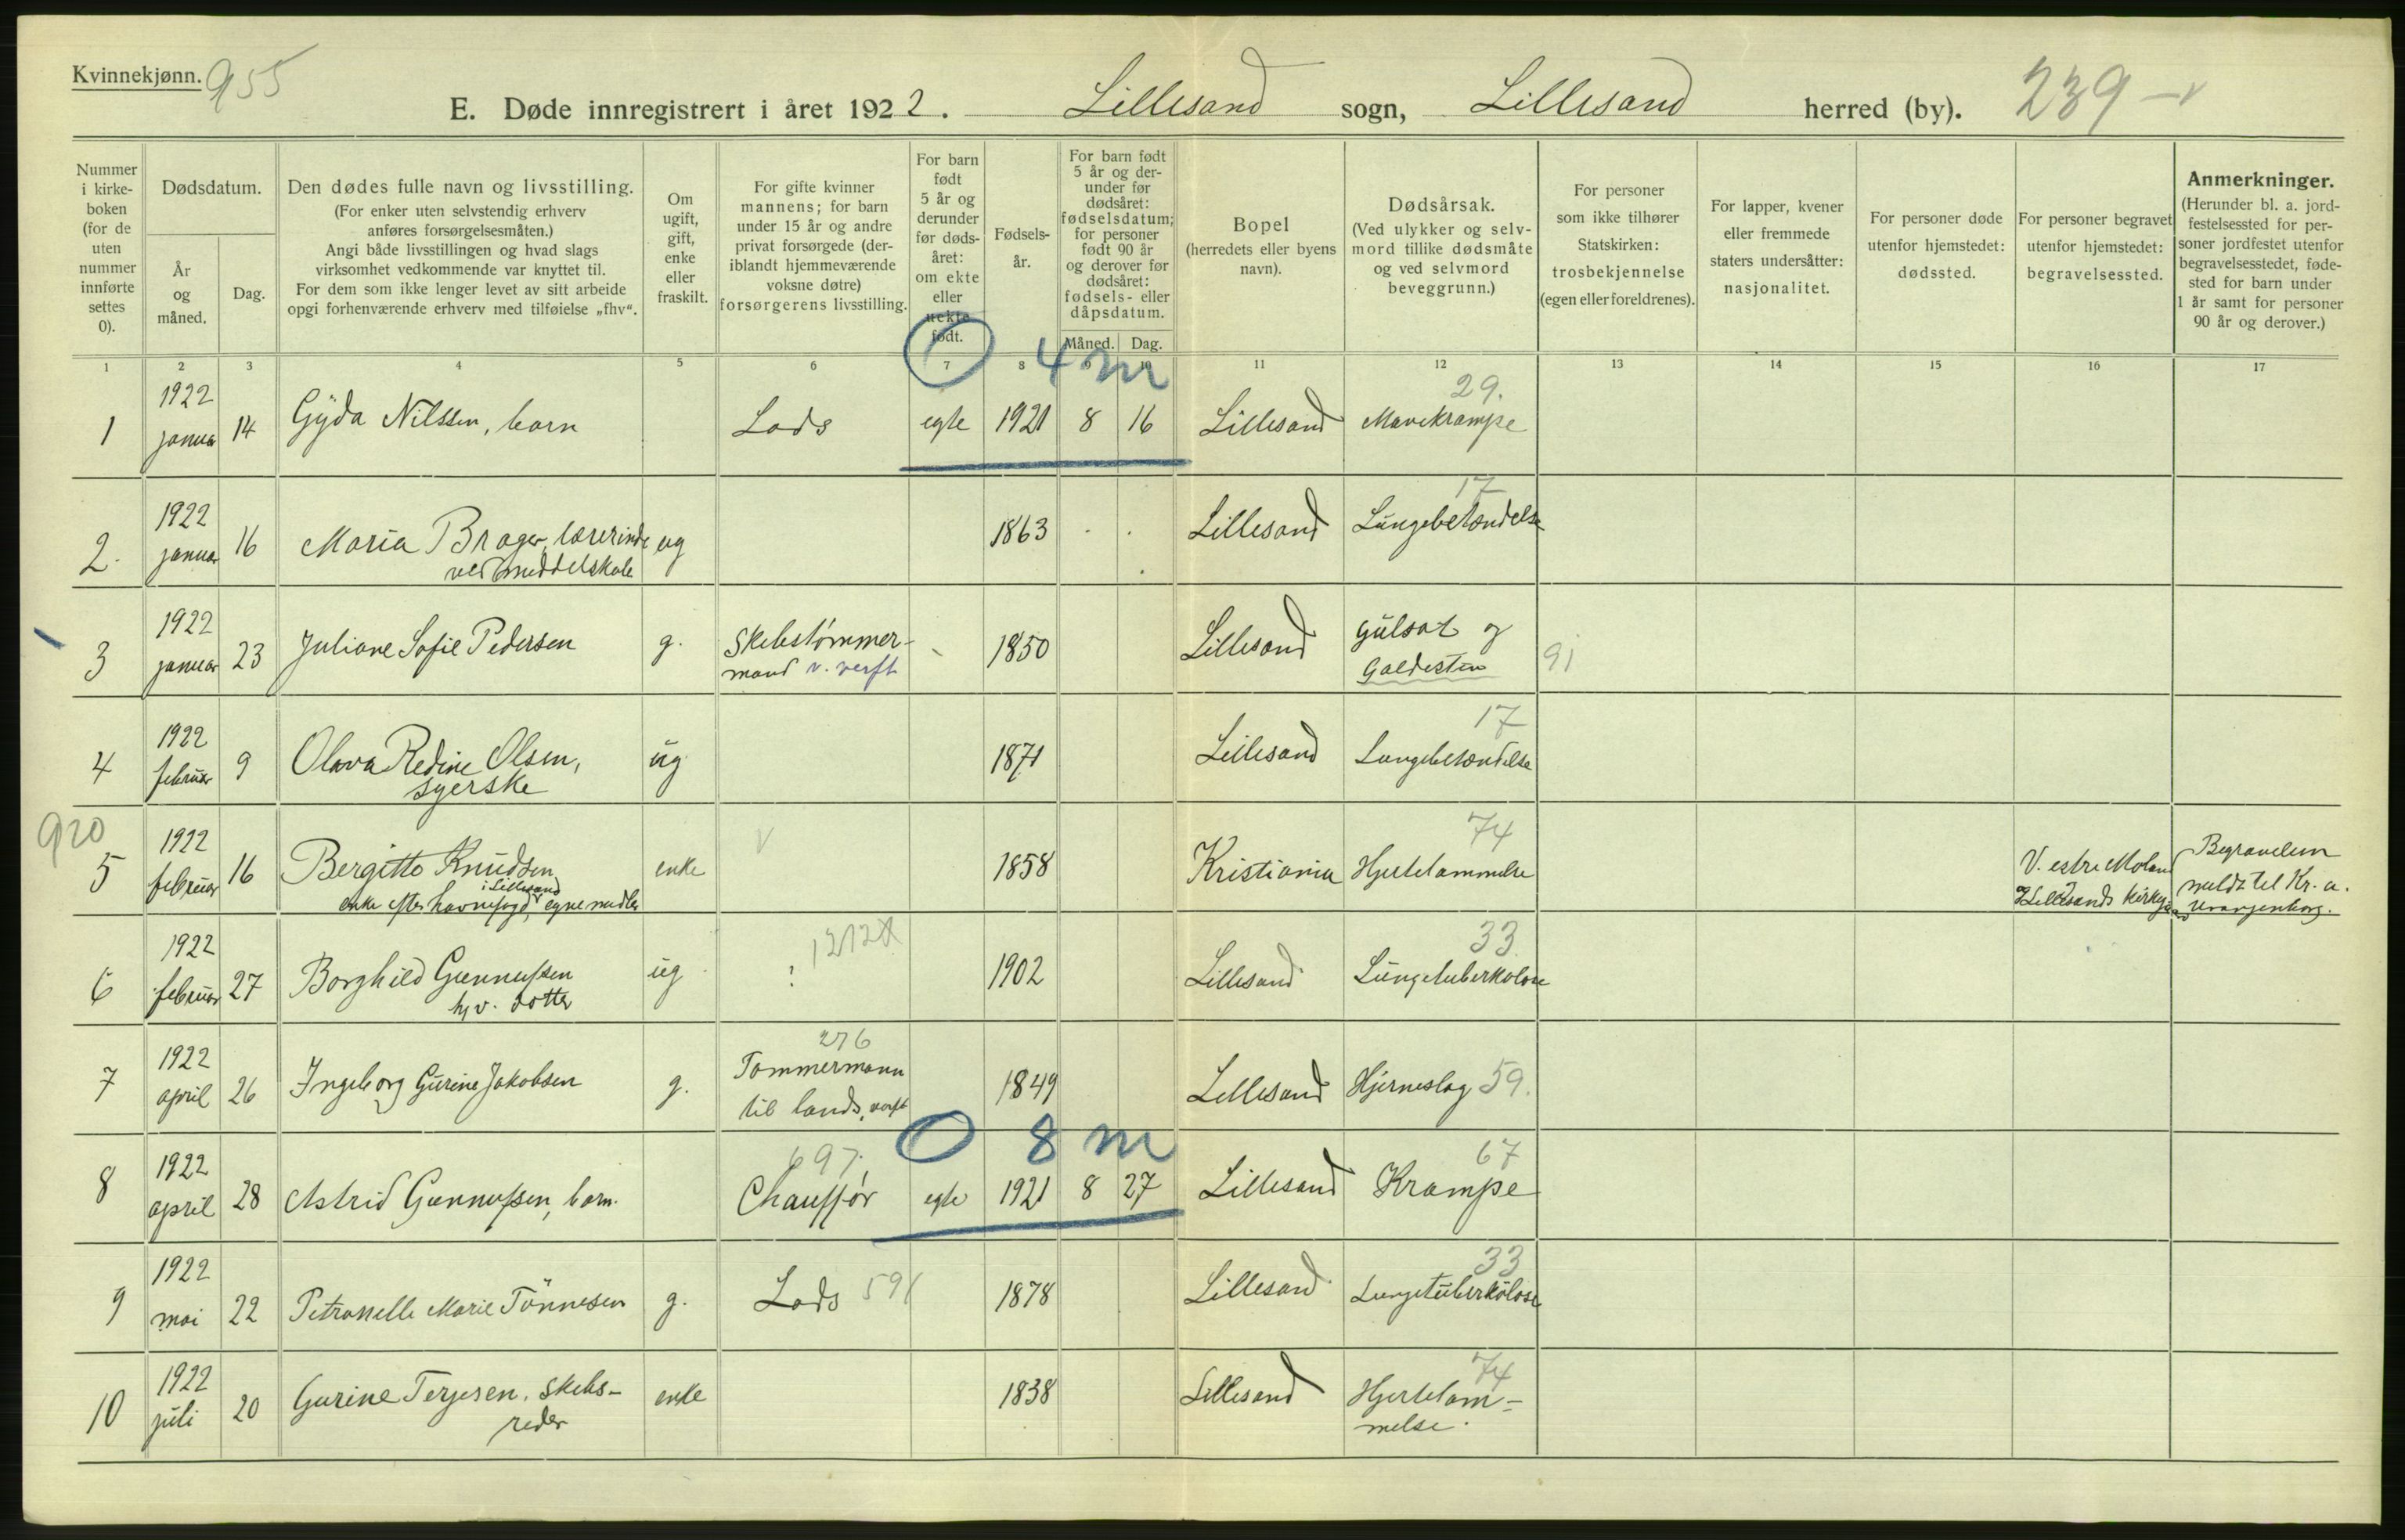 Kvinnekjønn. 955
E. Døde innregistrert i året 1922. Lillesand sogn, Lillesand herred (by). 239
Nummer i kirke- boken (for de uten nummer innførte settes 0).
Dødsdatum.
År og måned.
Dag.
Den dødes fulle navn og livsstilling.
(For enker uten selvstendig erhverv
anføres forsørgelsesmåten.)
Angi både livsstillingen og hvad slags
virksomhet vedkommende var knyttet til.
For dem som ikke lenger levet av sitt arbeide
opgi forhenværende erhverv med tilføielse „fhv“.
Om ugift, gift, enke eller fraskilt.
For gifte kvinner
mannens; for barn
under 15 år og andre
privat forsørgede (der-
iblandt hjemmeværende
voksne døtre)
forsørgerens livsstilling.
For barn født 5 år og derunder før døds- året: om ekte eller uekte født.
Fødsels- år.
For barn født
5 år og der-
under før
dødsåret:
fødselsdatum;
for personer
født 90 år
og derover før
dødsåret:
fødsels- eller
dåpsdatum.
Måned. Dag.
Bopel
(herredets eller byens
navn).
Dødsårsak.
(Ved ulykker og selv-
mord tillike dødsmåte
og ved selvmord
beveggrunn.)
For personer
som ikke tilhører
Statskirken:
trosbekjennelse
(egen eller foreldrenes).
For lapper, kvener
eller fremmede
staters undersåtter:
nasjonalitet.
For personer døde
utenfor hjemstedet:
dødssted.
For personer begravet
utenfor hjemstedet:
begravelsessted.
Anmerkninger.
(Herunder bl. a. jord-
festelsessted for per-
soner jordfestet utenfor
begravelsesstedet, føde-
sted for barn under
1 år samt for personer
90 år og derover.)
1 2 3 4 5 6 7 8 9 10 11 12 13 14 15 16 17
0 4 m
29.
1 1922 januar 14 Gyda Nilssen, barn Lods egte 1921 8 16 Lillesand Mavekrampe
17
2. 1922 januar 16 Maria Brager, lærerinde ug 1863 Lillesand Lungebetændelse
ved middelskole
3 1922 januar 23 Juliane Sofie Pedersen g. Skibstømmer- 1850 Lillesand Gulsot og
mand v. verft Galdesten 91
17
4 1922 februar 9 Olava Redine Olsen, ug 1871 Lillesand Lungebetændelse
syerske
920 74
5 1922 februar 16 Bergitte Knudsen enke 1858 Kristiania Hjertelammelse
i Lillesand
enke efter havnefoged, egne midler
V. estre Moland
Lillesands Kirkeg
Begravelsen
meldt til Kr. a.
Uranienborg.
33
6 1922 februar 27 Borghild Gunnufsen ug ? 1902 Lillesand Lungetuberkulose
hjv. dotter
276
7 1922 april 26 Ingeborg Gurine Jakobsen g. Tømmermann 1849 Lillesand Hjerneslag 59.
til lands, verft
0 8 m
697. 67
8 1922 april 28 Astrid Gunnufsen, barn. Chauffør egte 1921 8 27 Lillesand Krampe
33
9 1922 mai 22 Petronelle Marie Tönnesen g. Lods 591 1878 Lillesand Lungetuberkulose
74
10 1922 juli 20 Gurine Terjesen, Skibs- enke 1838 Lillesand Hjertelam-
reder melse.